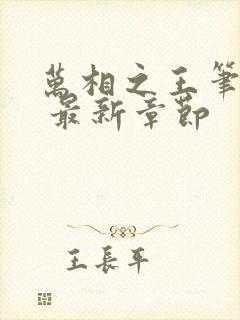 萬相之王筆
最新章節
王長平